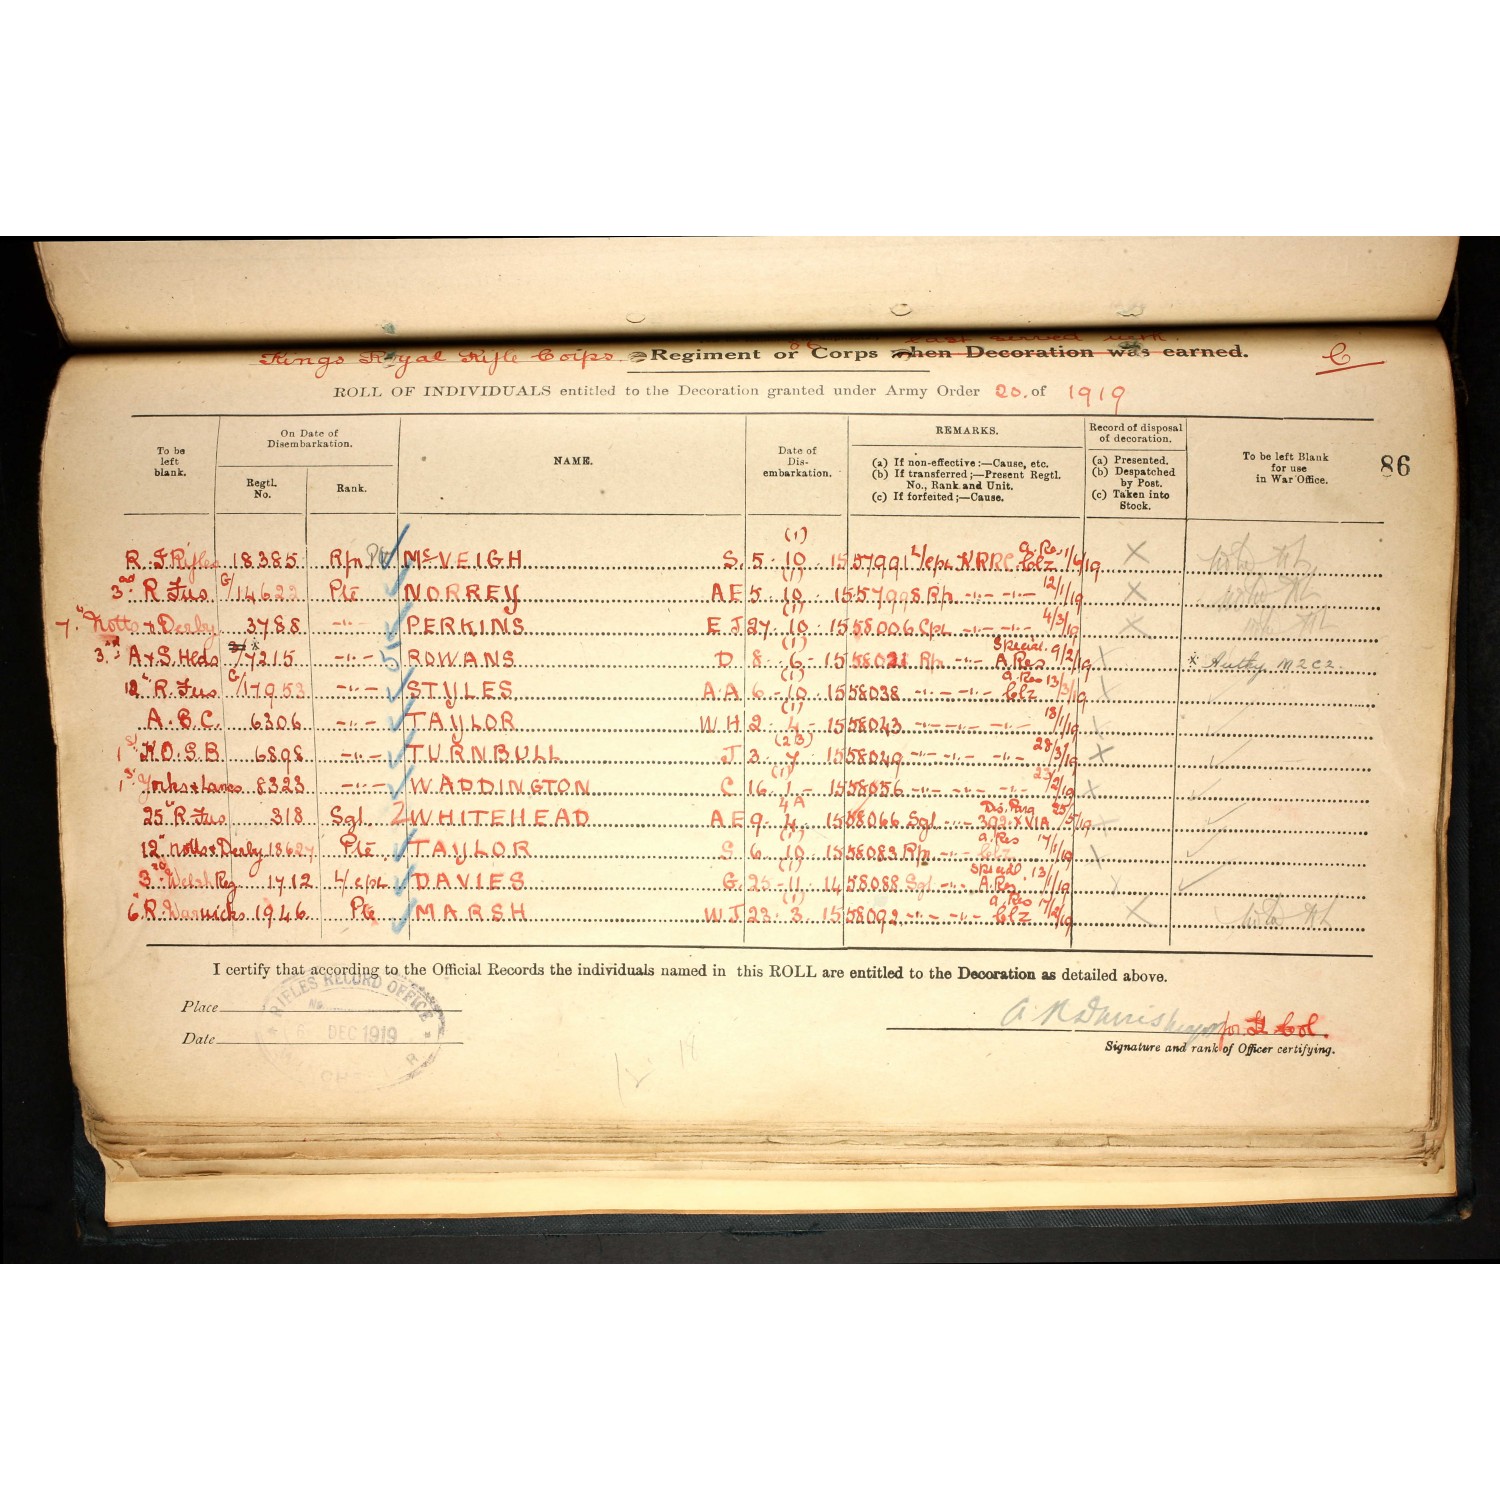 last served with.
Kings Royal Rifle Corps Regiment or Corps when Decoration was earned. C
ROLL OF INDIVIDUALS entitled to the Decoration granted under Army Order 20. of 1919
To be left blank. On Date of Disembarkation. Regtl. No. Rank. NAME. Date of Dis-embarkation. REMARKS. (a) If non-effective:—Cause, etc. (b) If transferred;—Present Regtl. No., Rank and Unit. (c) If forfeited;—Cause. Record of disposal of decoration. (a) Presented. (b) Despatched by Post. (c) Taken into Stock. To be left Blank for use in War Office. 86
R. I Rifles 18385 Rfn Pte McVEIGH S. 5 10 15 (1) 57991 L/cpl KRRC a. Res clz 1/4/19
3rd R Fus G/14622 Pte NORREY A E 5 10 15 (1) 57998 Rfn -"- -"- 12/1/19
7" Notts & Derby 3788 -"- PERKINS E J 27 10 15 (1) 58006 Cpl -"- -"- 4/3/19
3rd A & S. Hlds /7215 -"- 5 ROWANS D 8 6 15 (1) 58021 Rfn -"- Special A Res 9/2/19 * Authy M2C2.
12" R. Fus G/17953 -"- STYLES A. A 6 10 15 (1) 58038 -"- -"- a. Res clz 13/3/19
A. S. C. 6306 -"- TAYLOR W H 2 4 15 (1) 58043 -"- -"- -"- 18/1/19
1st K. O. S. B. 6898 -"- TURNBULL J 3 7 15 (2B) 58049 -"- -"- -"- 28/3/19
1st Yorks & Lancs 8323 -"- WADDINGTON C 16 1 15 (1) 58056 -"- -"- -"- 23/2/19
25" R Fus 318 Sgt 2 WHITEHEAD A E 9 4 15 4A 58066 Sgt -"- Dis. Para 392. XVIA 25/5/19
12" Notts & Derby 18627 Pte TAYLOR S 6 10 15 (1) 58083 Rfn -"- a. Res clz 17/1/19
3rd Welsh Reg 1712 L/cpl DAVIES G. 25 11 14 (1) 58088 Sgt -"- Special A. Res 13/1/19
6" R. Warwicks 1946 Pte MARSH W J 23 3 15 (1) 58092 -"- -"- a. Res clz 17/2/19
I certify that according to the Official Records the individuals named in this ROLL are entitled to the Decoration as detailed above.
Place
RIFLES RECORD OFFICE
No
DEC 1919
Date
for Lt Col.
Signature and rank of Officer certifying.